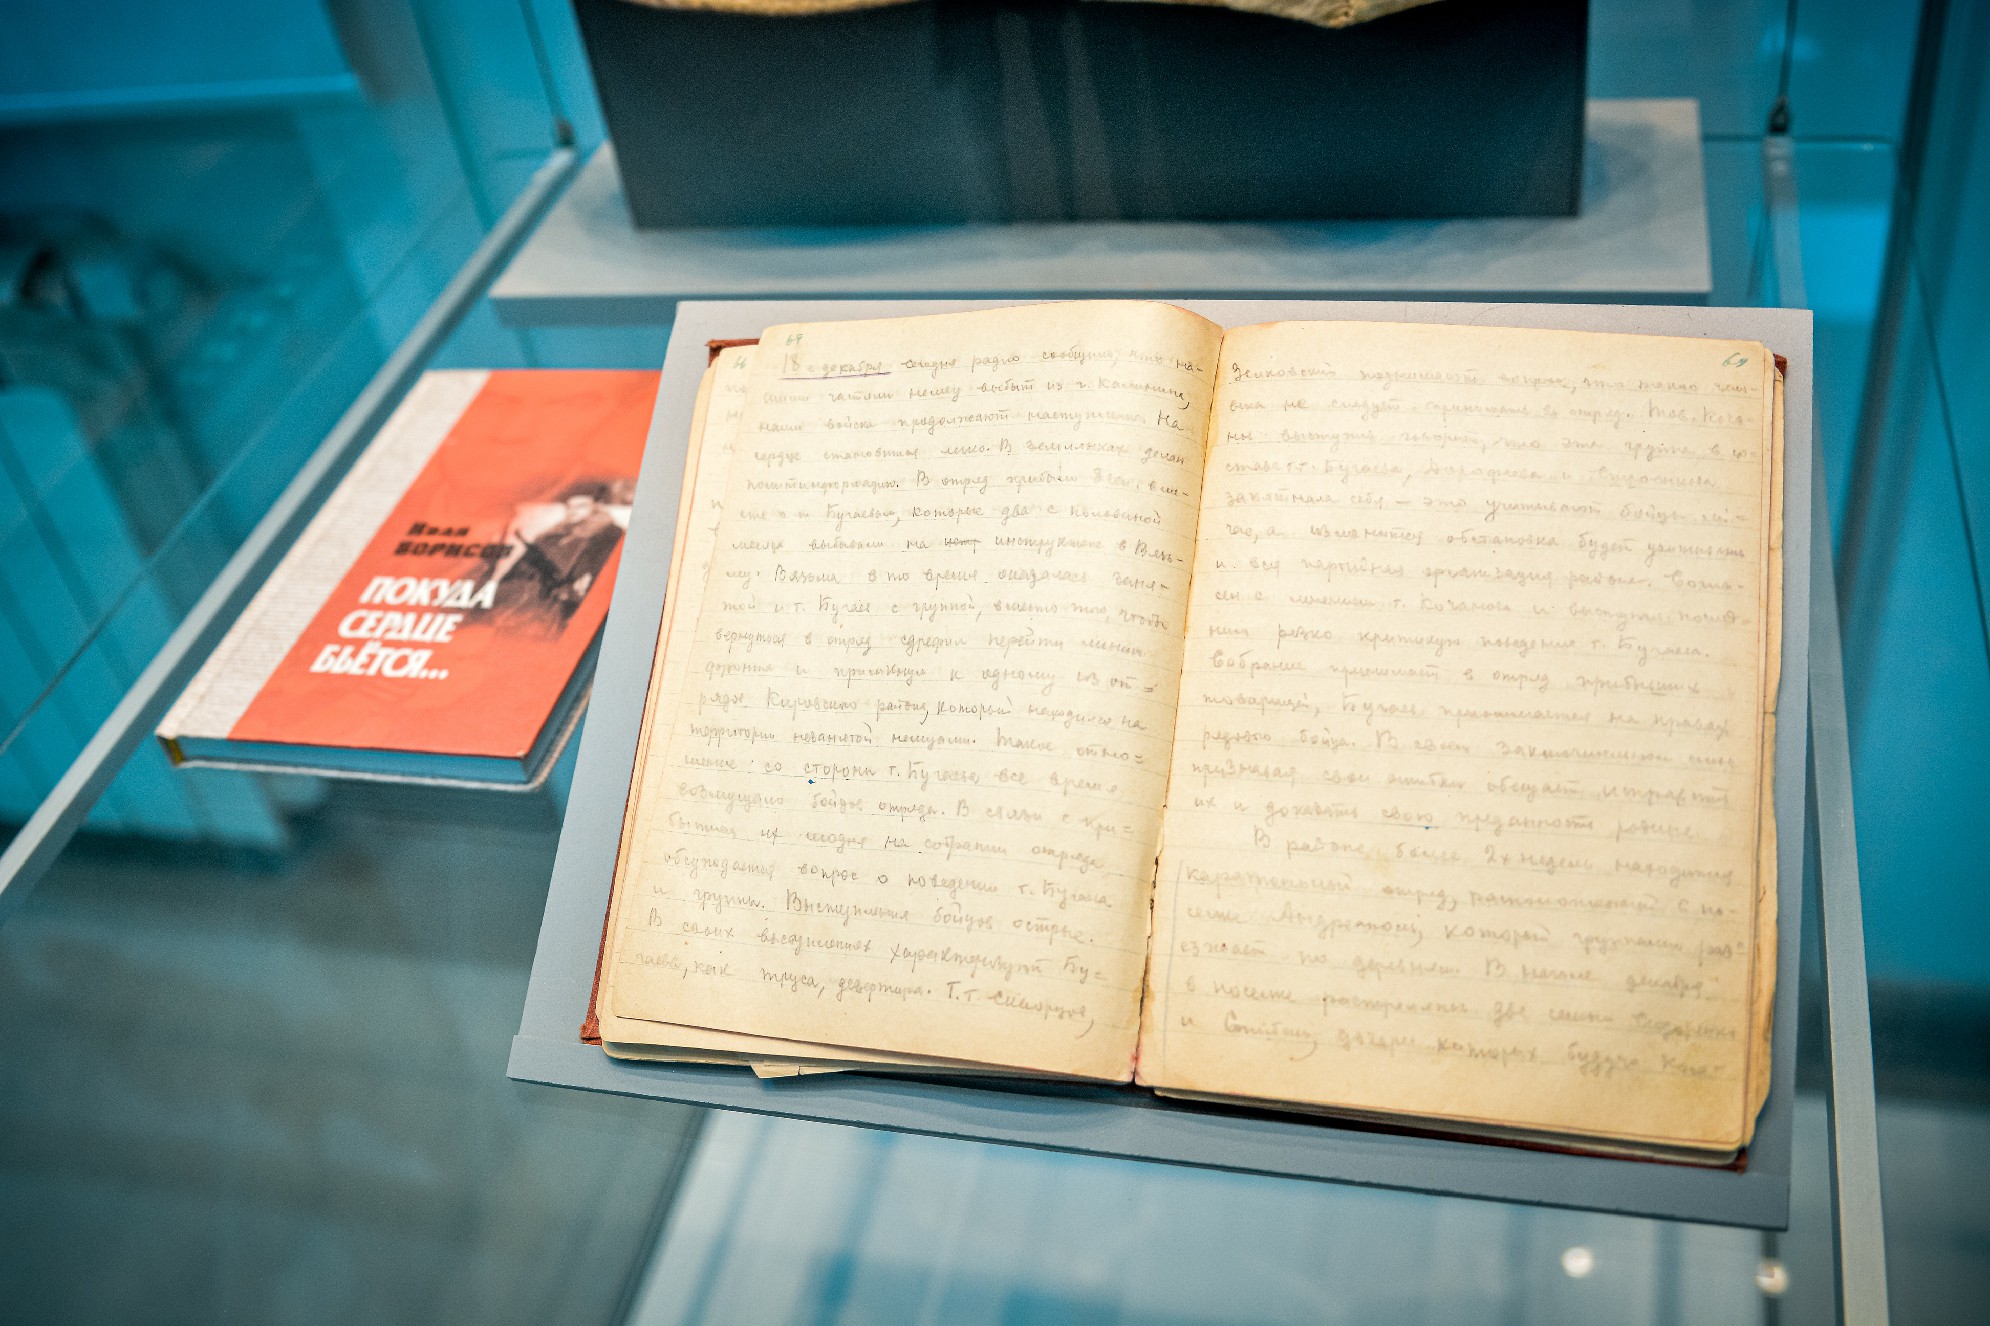 Иван
БОРИСОВ
ПОКУДА
СЕРДЦЕ
БЬЁТСЯ...
66
67
18 декабря сегодня радио сообщило, что на-
шими частями немец выбит из г. Калинина,
наши войска продолжают наступление. На
сердце становится легко. В землянках делаем
политинформацию. В отряд прибыло вме-
сте с т. Бугаевым, которые два с половиной
месяца выбывали на инструктаж в Вязь-
му. Вязьма в то время оказалась заня-
той и т. Бугаев с группой, вместо того, чтобы
вернуться в отряд сдрефил перейти линию
фронта и примкнул к одному из от-
рядов Кировского района, который находился на
территории незанятой немцами. Такое отно-
шение со стороны т. Бугаева все время
возмущало бойцов отряда. В связи с при-
бытием их сегодня на собрании отряда
обсуждается вопрос о поведении т. Бугаева
и группы. Выступления бойцов острые.
В своих высказываниях характеризуют Бу-
гаева, как труса, дезертира. Т.т.
69
поднимают вопрос, что такого чело-
века не следует принимать в отряд. Тов. Коча-
нов выступил говорит, что эта группа в со-
ставе т.т. Бугаева, и
запятнала себя — это учитывают бойцы сей-
час, а изменится обстановка будет учитывать
и вся партийная организация района. Согла-
сен с мнением т. Кочанова и выступил послед-
ним резко критикую поведение т. Бугаева.
Собрание принимает в отряд прибывших
товарищей, Бугаев принимается на правах
рядового бойца. В своем заключительном слове
признавая свои ошибки обещает исправить
их и доказать свою преданность родине.
В районе более 2х недель находится
карательный отряд, расположенный в по-
селке Андреаполь, который группами раз-
езжает по деревням. В начале декабря
в поселке расстреляны две семьи
и дочери которых будучи